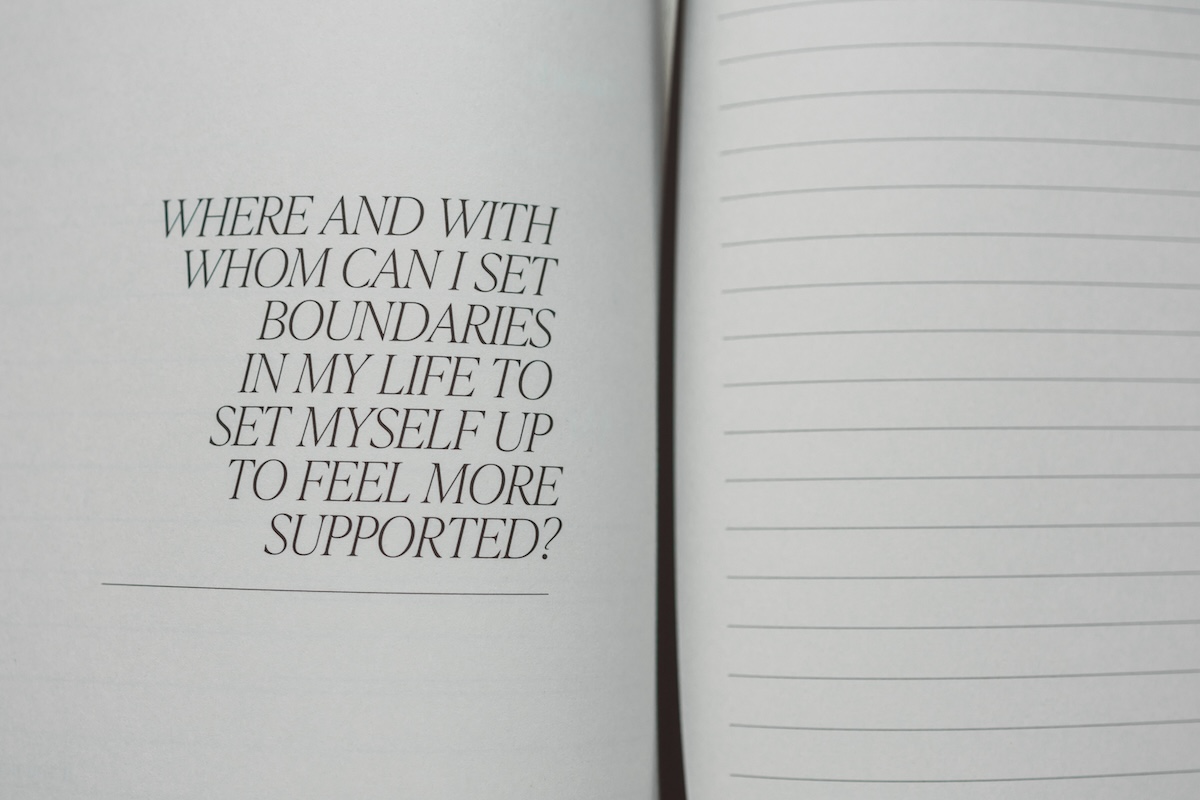 WHERE AND WITH
WHOM CAN I SET
BOUNDARIES
IN MY LIFE TO
SET MYSELF UP
TO FEEL MORE
SUPPORTED?